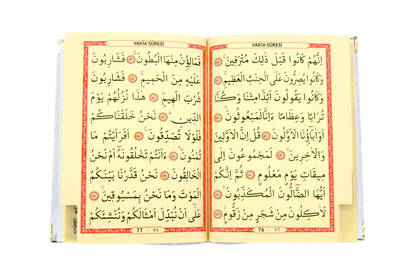 VAKIA SÛRESİ
اِنَّهُمْ كَانُوا قَبْلَ ذٰلِكَ مُتْرَفٖينَ
وَكَانُوا يُصِرُّونَ عَلَى الْحِنْثِ الْعَظٖيمِ
وَكَانُوا يَقُولُونَ اَئِذَا مِتْنَا وَكُنَّا
تُرَابًا وَعِظَامًا ءَاِنَّا لَمَبْعُوثُونَ
اَوَاٰبَاؤُنَا الْاَوَّلُونَ قُلْ اِنَّ الْاَوَّلٖينَ
وَالْاٰخِرٖينَ لَمَجْمُوعُونَ اِلٰى
مٖيقَاتِ يَوْمٍ مَعْلُومٍ ثُمَّ اِنَّكُمْ
اَيُّهَا الضَّالُّونَ الْمُكَذِّبُونَ
لَاٰكِلُونَ مِنْ شَجَرٍ مِنْ زَقُّومٍ
76 ٧٦
VAKIA SÛRESİ
فَمَالِؤُنَ مِنْهَا الْبُطُونَ فَشَارِبُونَ
عَلَيْهِ مِنَ الْحَمٖيمِ فَشَارِبُونَ
شُرْبَ الْهٖيمِ هٰذَا نُزُلُهُمْ يَوْمَ
الدّٖينِ نَحْنُ خَلَقْنَاكُمْ
فَلَوْلَا تُصَدِّقُونَ اَفَرَاَيْتُمْ مَا
تُمْنُونَ ءَاَنْتُمْ تَخْلُقُونَهُ اَمْ نَحْنُ
الْخَالِقُونَ نَحْنُ قَدَّرْنَا بَيْنَكُمُ
الْمَوْتَ وَمَا نَحْنُ بِمَسْبُوقٖينَ
عَلٰى اَنْ نُبَدِّلَ اَمْثَالَكُمْ وَنُنْشِئَكُمْ
77 ٧٧